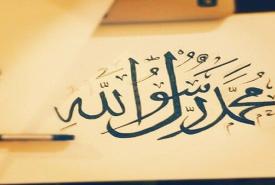 مُحَمَّد رَسُولُ اللّٰه